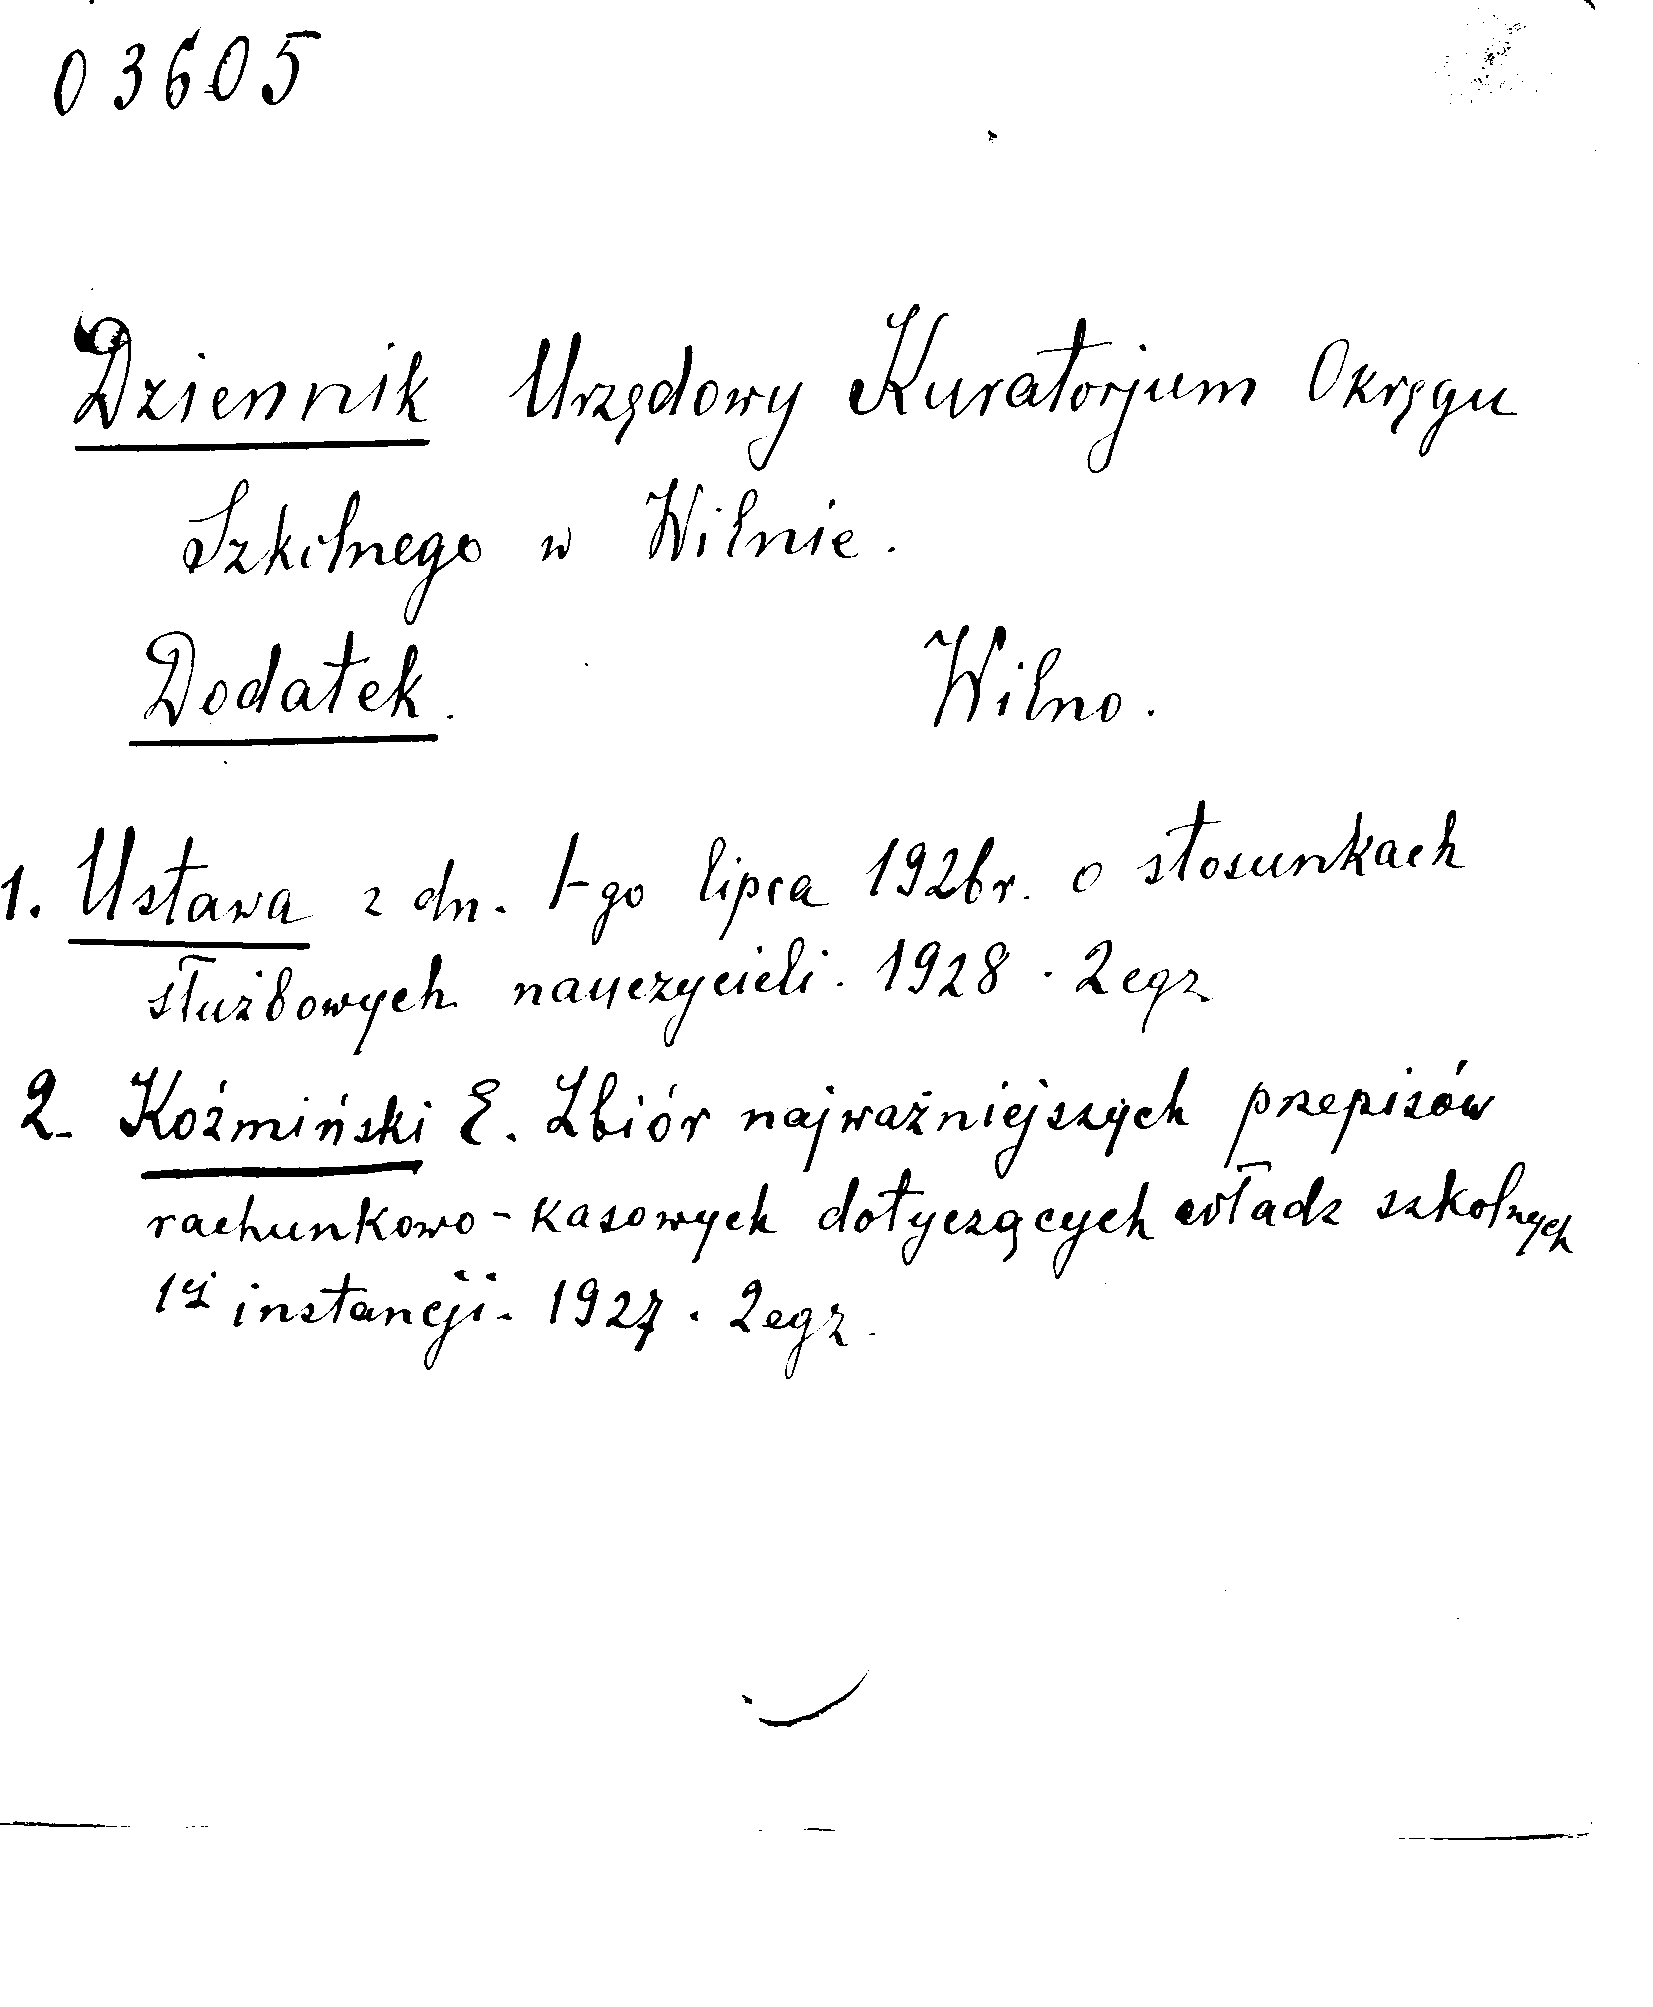 03605
Dziennik Urzędowy Kuratorjum Okręgu
Szkolnego w Wilnie.
Dodatek. Wilno.
1. Ustawa z dn. 1-go lipca 1926 r. o stosunkach
służbowych nauczycieli. 1928. 2 egz
2. Koźmiński E. Zbiór najważniejszych przepisów
rachunkowo-kasowych dotyczących władz szkolnych
1ej instancji. 1927. 2 egz.